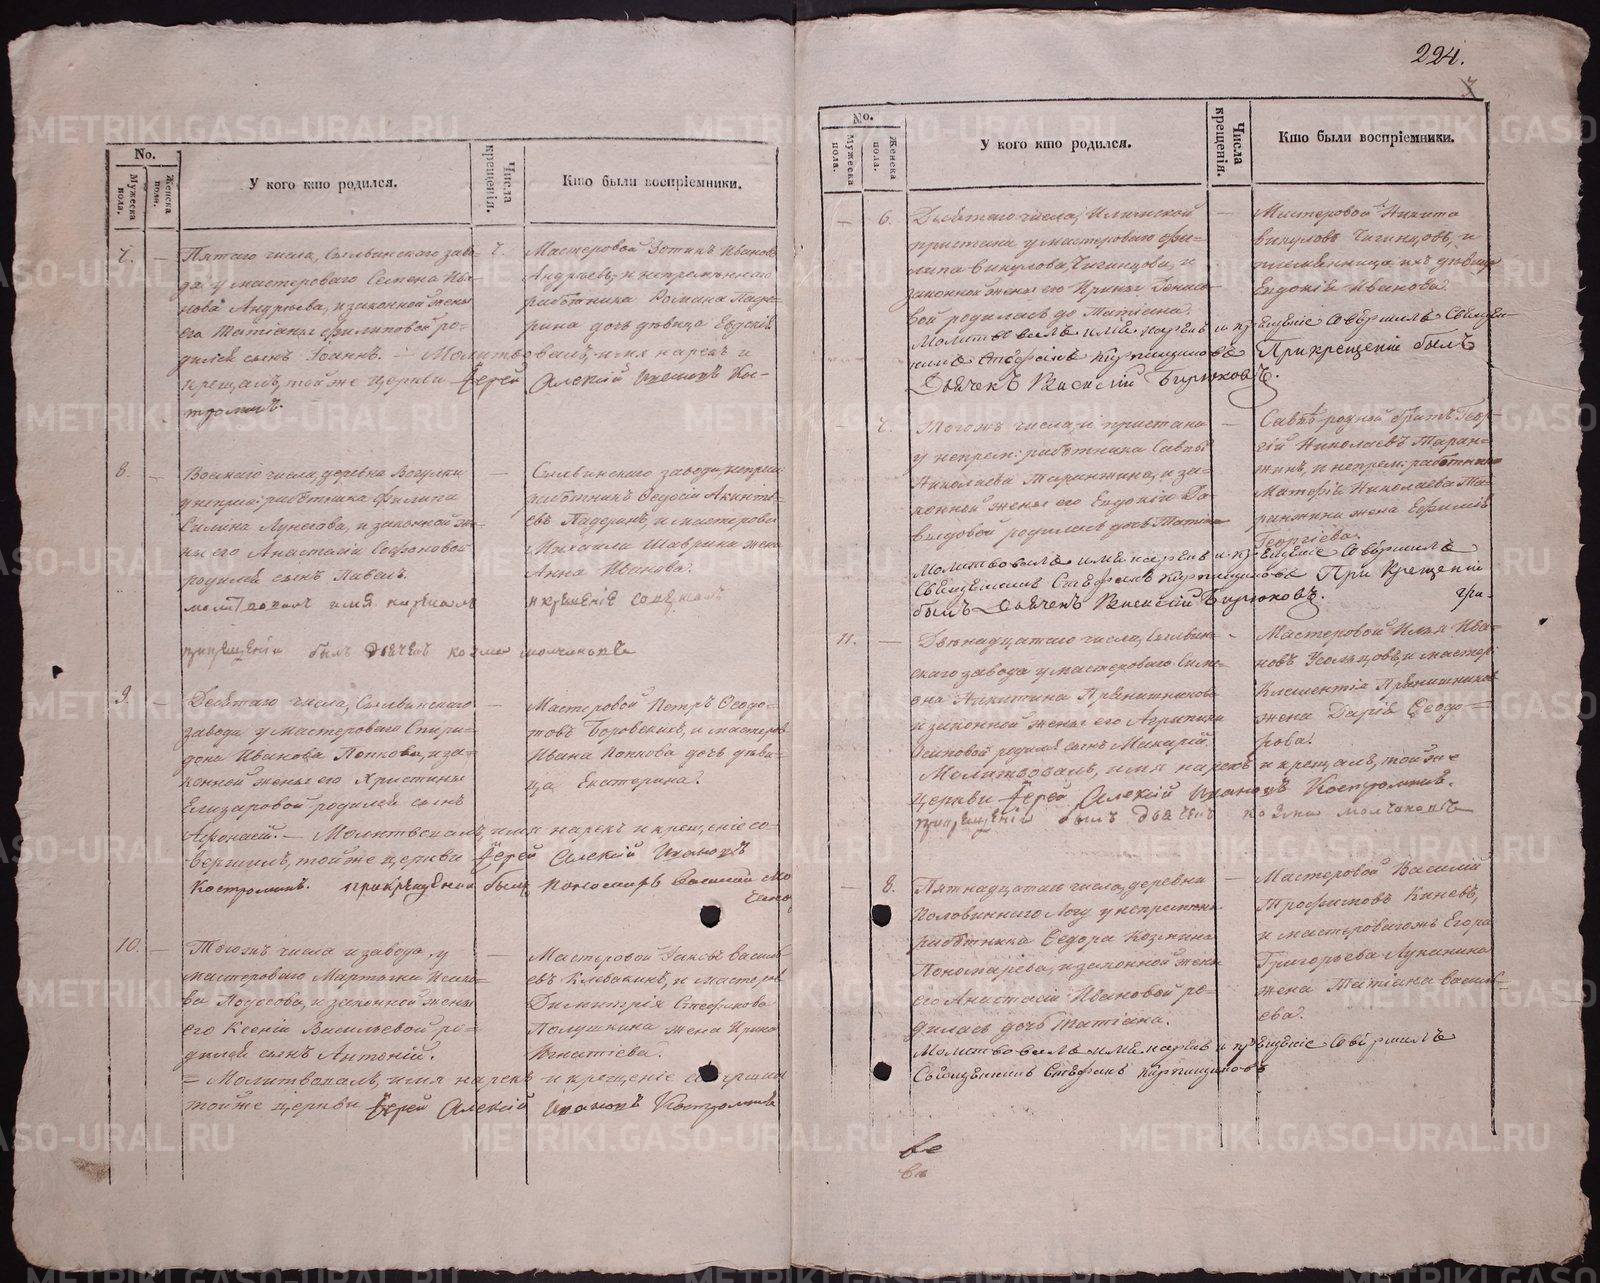 No.
Мужеска пола.
Женска пола.
У кого кто родился.
Числа крещенія.
Кто были воспріемники.
7.
Пятаго числа, Сылвинскаго заво-
да у мастероваго Семена Ива-
нова Андреева, и законной жены
его Татіаны Филиповой ро-
дился сынъ Іоаннъ. — Молитвовалъ, имя нарекъ и
крещалъ, той же церкви Іерей Алексій Иванов Кос-
тромин.
7.
Мастеровой Зотикъ Иванов
Андреевъ, и непремѣннаго
работника Романа Паде-
рина дочь дѣвица Евдокія
8.
Восмаго числа, деревни Вогулки
у непрем: работника Филипа
Силина Лунегова, и законной же-
ны его Анастасіи Софоновой
родился сынъ Павелъ.
молитвовалъ имя нарекалъ и крещеніе совершалъ
прикрещеніи былъ дьячекъ козма молчановъ
Сылвинскаго завода непрем
работникъ Ѳедосій Акинѳі-
евъ Падеринъ, и мастероваго
Михаила Шаврина жена
Анна Иванова.
9.
Десятаго числа, Сылвинскаго
завода у мастероваго Спири-
дона Иванова Попкова, и за-
конной жены его Христины
Елизаровой родился сынъ
Аѳонасій. — Молитвовалъ, имя нарекъ и крещеніе со-
вершилъ, той же церкви Іерей Алексій Ивановъ
Костроминъ. прикрещеніи былъ пономарь Василій
Мастеровой Петръ Ѳедо-
товъ Боровскихъ, и мастеров
Ивана Попкова дочь дѣви-
ца Екатерина.
10.
Тогожъ числа и завода, у
мастероваго Мартына Исако-
ва Подосова, и законной жены
его Ксеніи Васильевой ро-
дился сынъ Антоній.
= Молитвовалъ, имя нарекъ и крещеніе совершилъ
той же церкви Іерей Алексій Ивановъ Костроминъ
Мастеровой Яковъ Василь-
евъ Клевакинъ, и мастеров
Димитрія Стефанова
Полушкина жена Ирина
Игнатіева.
224.
No.
Мужеска пола.
Женска пола.
У кого кто родился.
Числа крещенія.
Кто были воспріемники.
6.
Десятаго числа, Илимской
пристани у мастероваго Фи-
липа Викулова Чигинцова, и
законной жены его Ирины Денисо-
вой родилась до Татіана.
Молитвовалъ имя нарекъ и крещеніе Совершилъ Священ-
никъ Стефанъ Кирпищиковъ При крещеніи былъ
Дьячекъ Василій Бирюковъ.
Мастеровой Никита
Викуловъ Чигинцовъ, и
племянница ихъ дѣвица
Евдокія Иванова.
7.
Тогожъ числа, и пристани
у непрем: работника Савы
Николаева Таринтина, и за-
конной жены его Евдокіи Да-
выдовой родилась дочь Татіана
Молитвовалъ имя нарекъ и крещеніе Совершилъ
Священникъ Стефанъ Кирпищиковъ При Крещеніи
былъ Дьячекъ Василій Бирюковъ.
Савѣ родной братъ Геор-
гій Николаевъ Таран-
жинъ, и непрем: работника
Матфія Николаева Та-
ранжина жена Ефимія
Георгіева.
11.
Двѣнадцатаго числа, Сылвин-
скаго завода у мастероваго Симе-
она Никитина Прянишникова
и законной жены его Агрипины
Осиповой родился сынъ Макарій.
Молитвовалъ, имя нарекъ и крещалъ, той же
церкви Іерей Алексій Ивановъ Костроминъ.
прикрещеніи былъ дьячекъ козма молчановъ
Мастеровой Илья Ива-
новъ Усольцовъ, и мастер:
Климентія Прянишникова
жена Дарія Ѳеодо-
рова.
8.
Пятнадцатаго числа, деревни
Половиннаго Логу у непремѣн:
работника Ѳедора Козмина
Пономарева, и законной жены
его Анастасіи Ивановой ро-
дилась дочь Татіана.
Молитвовалъ имя нарекъ и крещеніе Совершилъ
Священникъ Стефанъ Кирпищиковъ
Мастеровой Василій
Трофимовъ Киневъ,
и мастеровагожъ Егора
Григорьева Лукинина
жена Татіана Василь-
ева.
ве